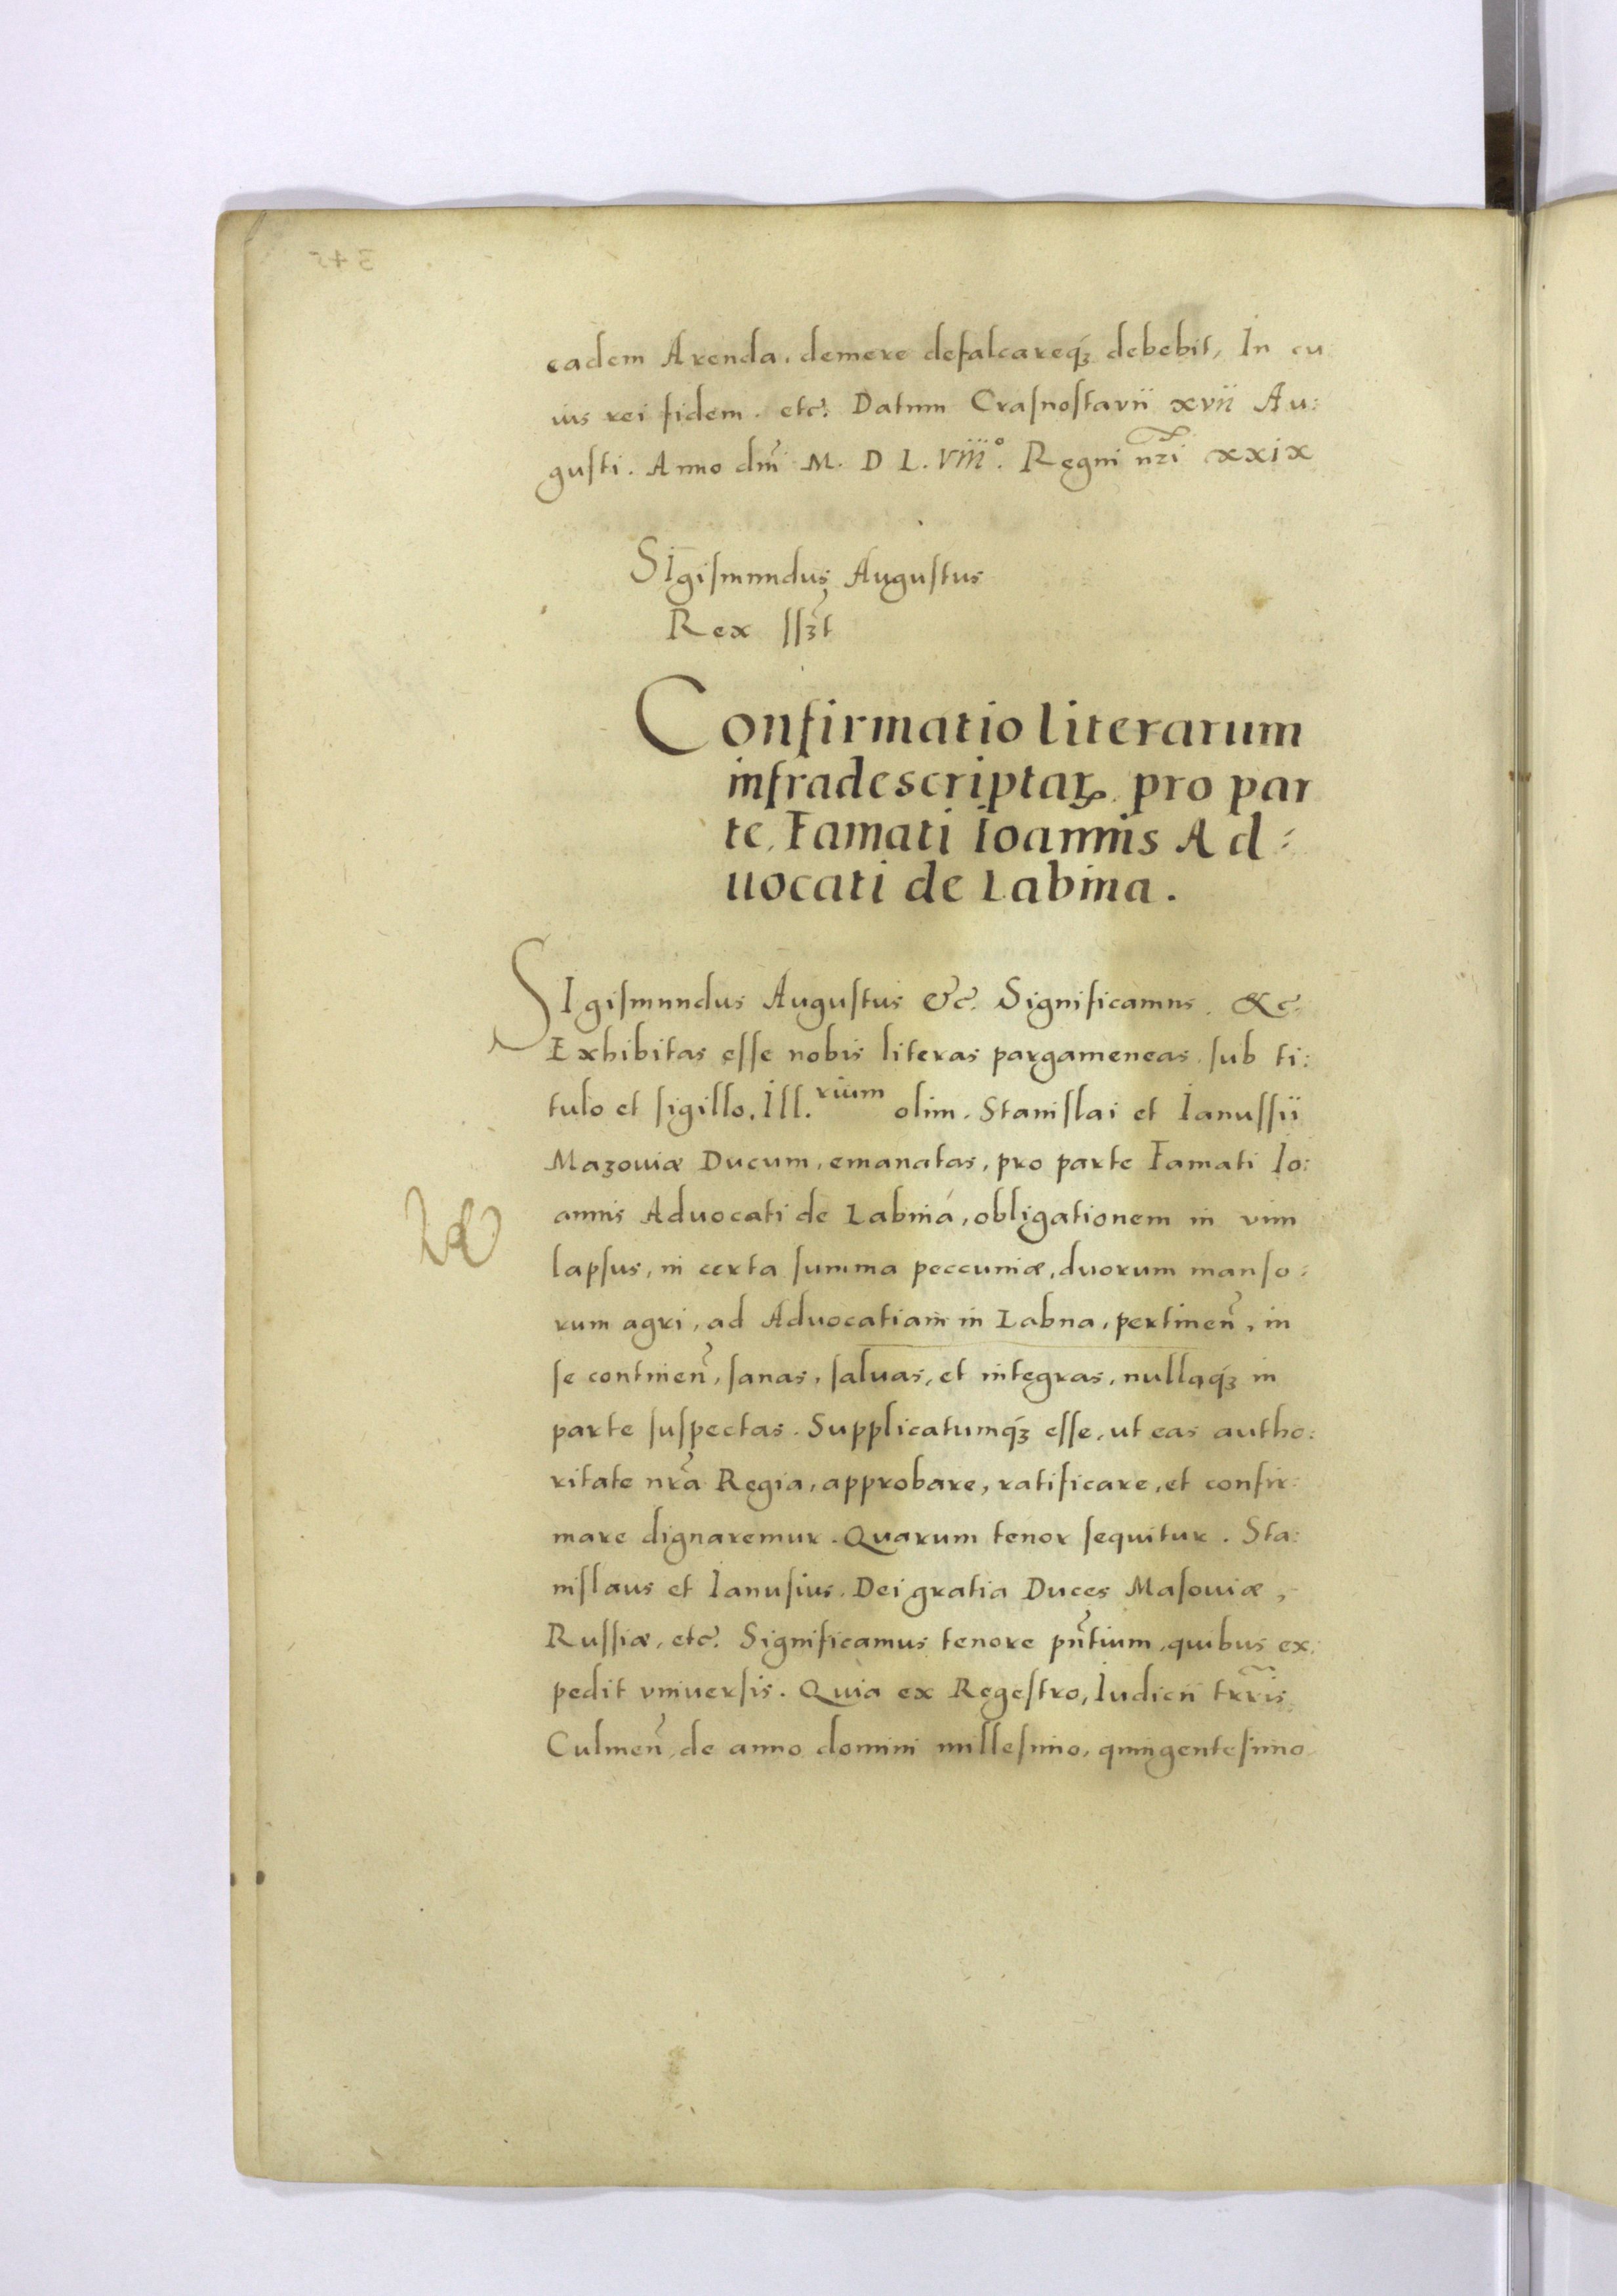 eadem Arenda. demere defalcareqꝫ debebit, In cu
ius rei fidem. etc. Datum Crasnostavii xvii Au:
gusti. Anno dm̄ M. D L. VIII°. Regni nr̄i xxix
SIgismundus Augustus
Rex sszt
Confirmatio literarum
infradescriptaꝝ. pro par
te, Famati Ioannis Ad:
uocati de Labina.
SIgismundus Augustus &c. Significamus. &c.
Exhibitas esse nobis literas pargameneas. sub ti:
tulo et sigillo. Ill.rium olim. Stanislai et Ianussii
Mazouiæ Ducum, emanatas, pro parte Famati Io:
annis Aduocati de Labiná, obligationem in vim
lapsus, in certa summa peccuniæ, duorum manso:
rum agri, ad Aduocatiam in Labna, pertinen̄, in
se continen̄, sanas, saluas, et integras, nullaqꝫ in
parte suspectas. Supplicatumqꝫ esse, ut eas autho:
ritate nr̄a Regia, approbare, ratificare, et confir:
mare dignaremur. Quarum tenor sequitur. Sta:
nislaus et Ianusius. Dei gratia Duces Masouiæ,
Russiæ, etc. Significamus tenore pn̄tium, quibus ex:
pedit vniuersis. Quia ex Regestro, Iudicii trr̄is
Culmen̄, de anno domini millesimo, quingentesimo